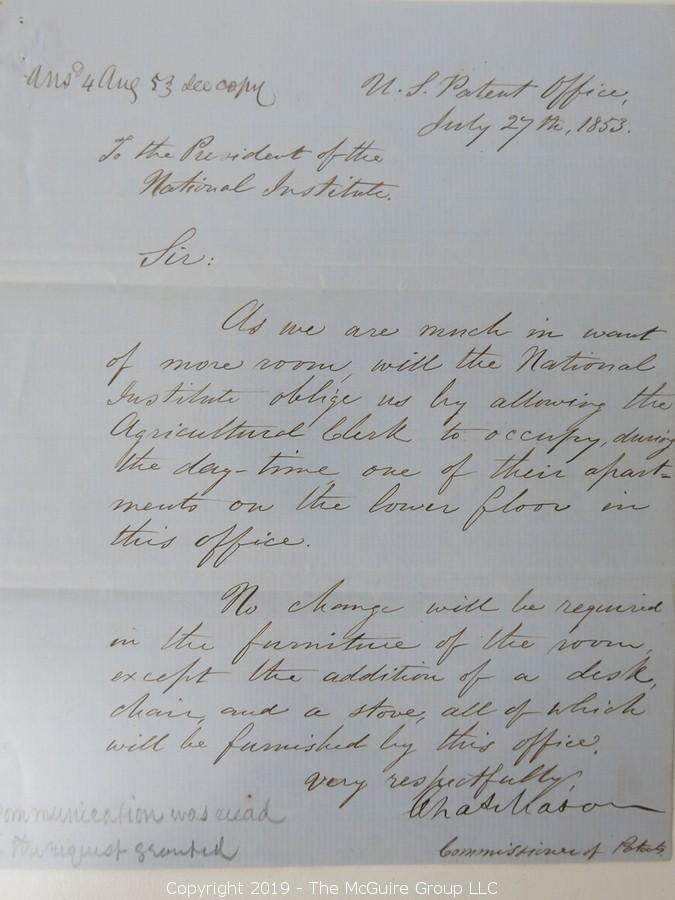 Ansd 4 Aug 53 see copy
U. S. Patent Office,
July 27th, 1853.
To the President of the
National Institute.
Sir:
As we are much in want
of more room, will the National
Institute oblige us by allowing the
Agricultural Clerk to occupy, during
the day-time, one of their apart=
ments on the lower floor in
this office.
No change will be required
in the furniture of the room,
except the addition of a desk,
chair, and a stove, all of which
will be furnished by this office.
Very respectfully,
Chas Mason
Commissioner of Patents
ommunication was read
the request granted
Copyright 2019 - The McGuire Group LLC